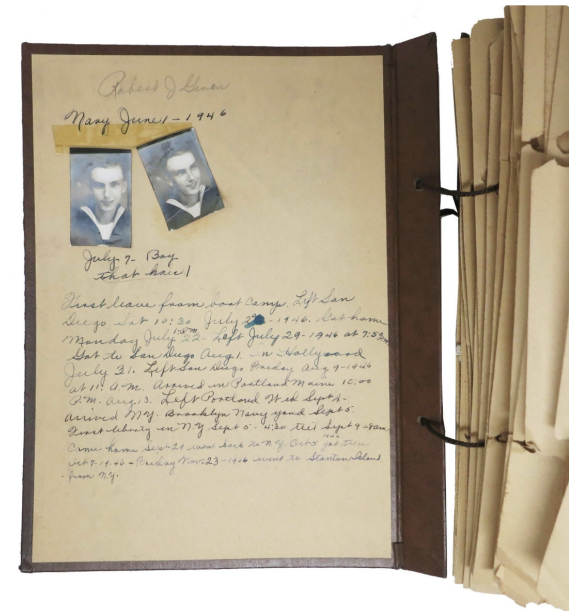 Robert J
Navy June 1 - 1946
July 7 - Boy
that hair!
First leave from boot camp. Left San
Diego Sat 10:30 July - 1946. Got home
Monday July 22 - Left July 29 - 1946 at 7:55
Got to San Diego Aug 1. - in Hollywood
July 31. Left San Diego Friday Aug 9 - 1946
at 11: A.M. Arrived in Portland Maine 10:00
P.M. Aug 13. Left Portland Wed Sept 4 -
arrived N.Y. Brooklyn Navy yard Sept 5.
First liberty in N.Y Sept 5 - 4:30 till Sept 9 - 8am
Came home Sept 29 went back to N.Y. Oct 5
Oct 7 - 1946 - Friday Nov. 23 - 1946 went to Stanton Island
from N.Y.